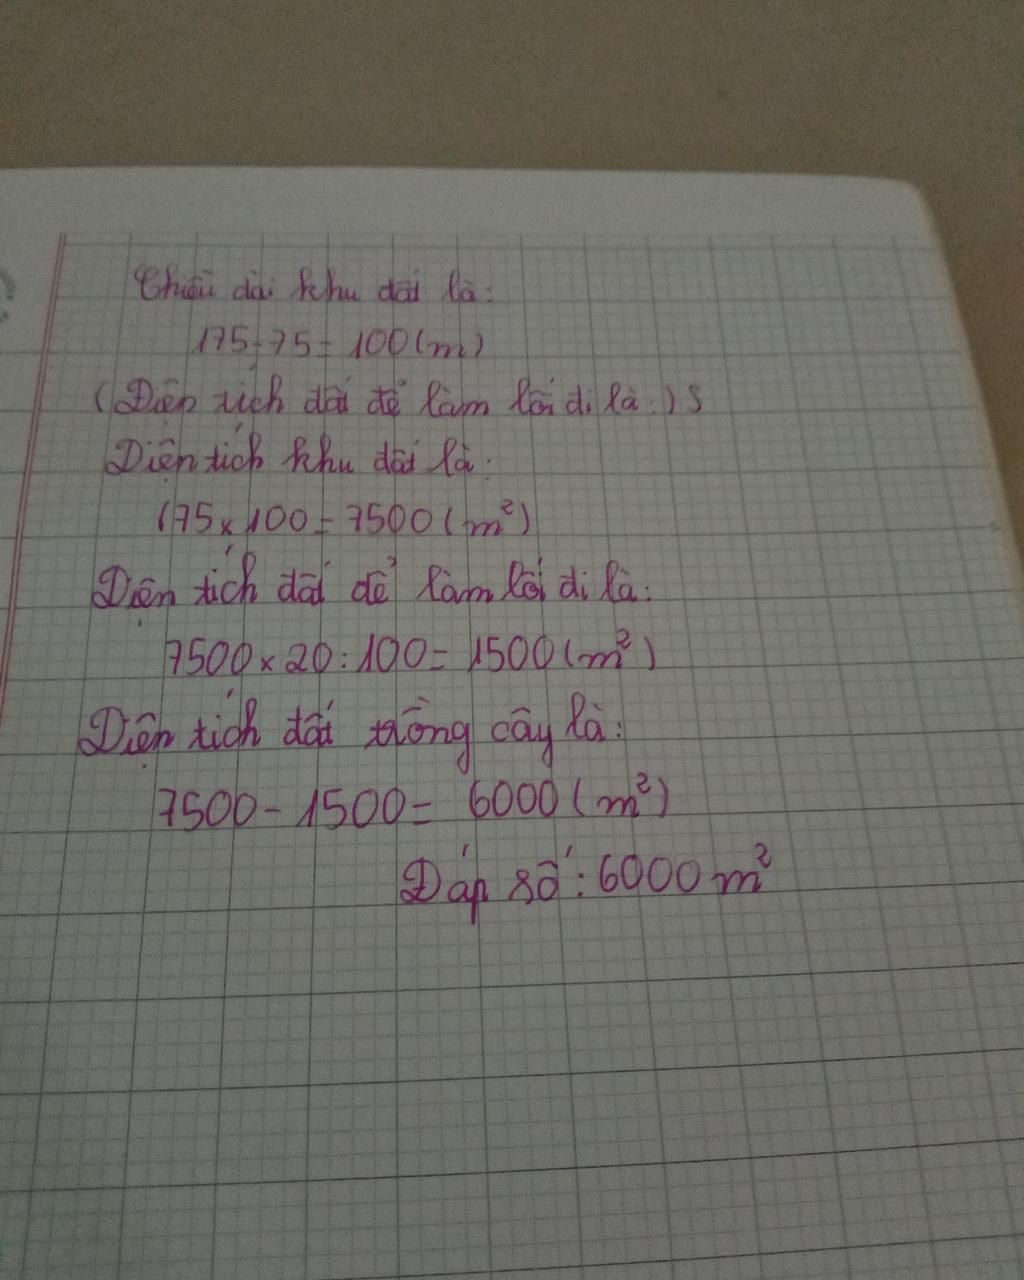 Chiều dài khu đất là:
175-75= 100(m)
(Diện tích đất để làm lối đi là:) S
Diện tích khu đất là:
(75x100=7500(m²)
Diện tích đất để làm lối đi là:
7500x20:100= 1500(m²)
Diện tích đất trồng cây là:
7500-1500= 6000(m²)
Đáp số: 6000m²